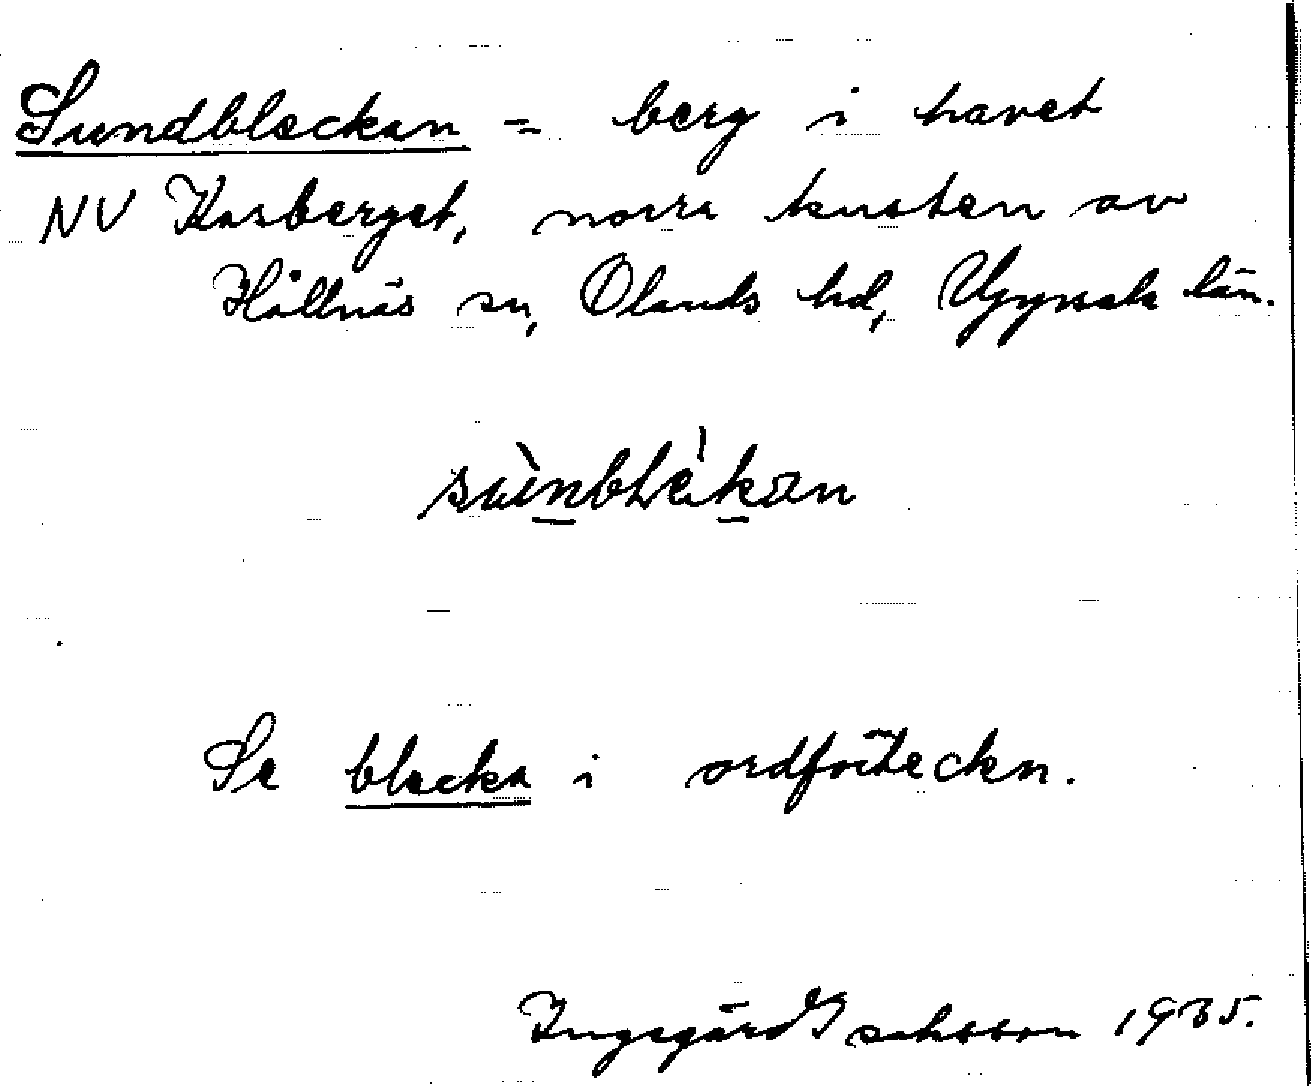 Sundbleckan = berg i havet
NV Kasberget, norra kusten av
Hållnäs sn, Olands hd, Uppsala län.
sùnblèkan
Se blecka i ordförteckn.
Ingegärd Isaksson 1935.